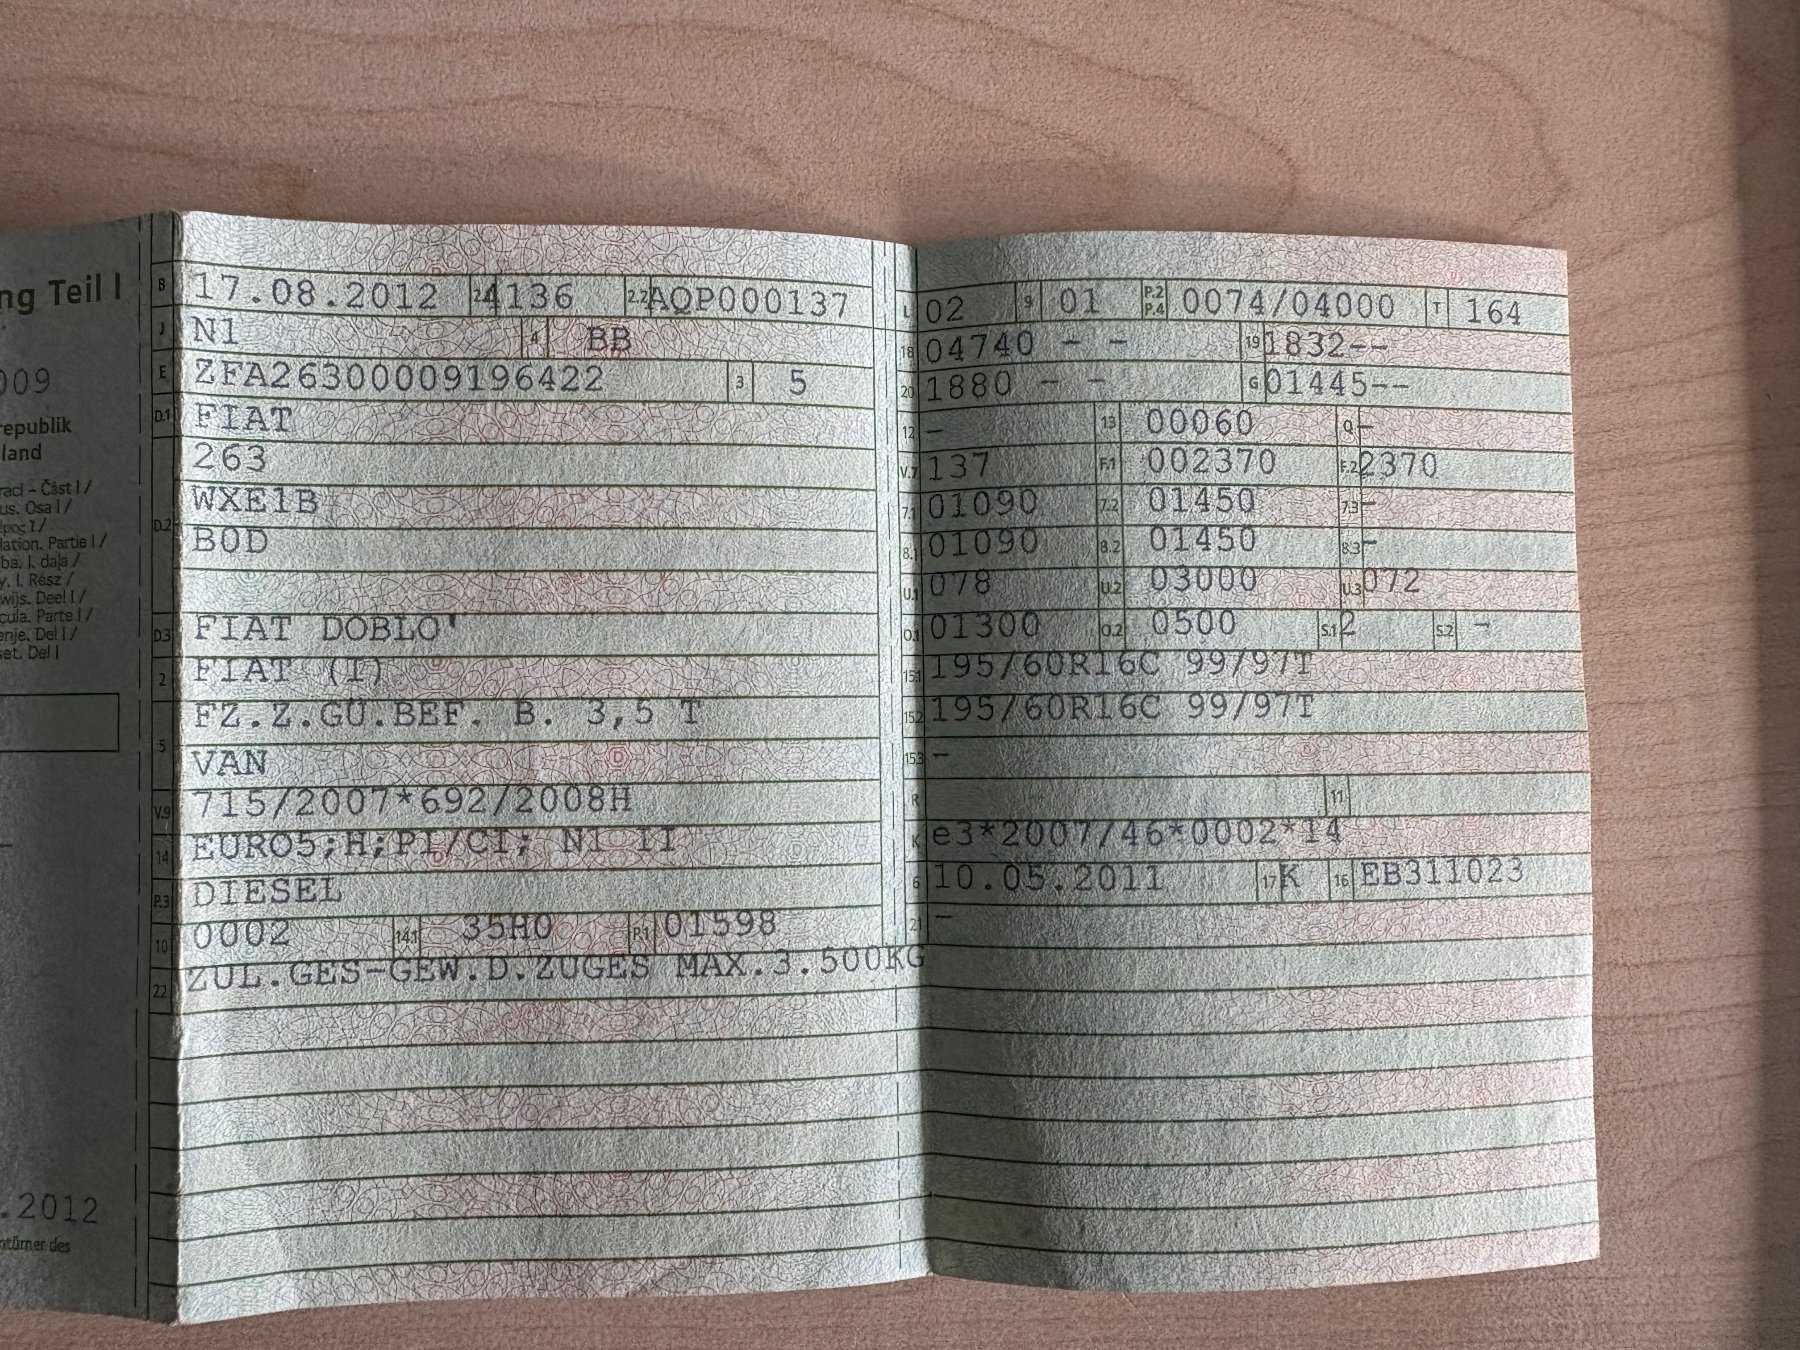 ng Teil I
009
republik
land
raci – Část I /
us. Osa I /
έρος I /
lation. Partie I /
ība. I. daļa /
y. I. Rész /
wijs. Deel I /
cula. Parte I /
enje. Del I /
set. Del I
.2012
ntümer des
B 17.08.2012 2.1 4136 2.2 AQP000137
J N1 4 BB
E ZFA26300009196422 3 5
D.1 FIAT
263
D.2 WXE1B
B0D
D.3 FIAT DOBLO'
2 FIAT (I)
FZ.Z.GÜ.BEF. B. 3,5 T
5 VAN
V.9 715/2007*692/2008H
14 EURO5;H;PI/CI; N1 II
P.3 DIESEL
10 0002 14.1 35H0 P.1 01598
22 ZUL.GES-GEW.D.ZUGES MAX.3.500KG
L 02 9 01 P.2 P.4 0074/04000 T 164
18 04740 - - 19 1832--
20 1880 - - G 01445--
12 - 13 00060 Q -
V.7 137 F.1 002370 F.2 2370
7.1 01090 7.2 01450 7.3 -
8.1 01090 8.2 01450 8.3 -
U.1 078 U.2 03000 U.3 072
O.1 01300 O.2 0500 S.1 2 S.2 -
15.1 195/60R16C 99/97T
15.2 195/60R16C 99/97T
15.3 -
R 11
K e3*2007/46*0002*14
6 10.05.2011 17 K 16 EB311023
21 -